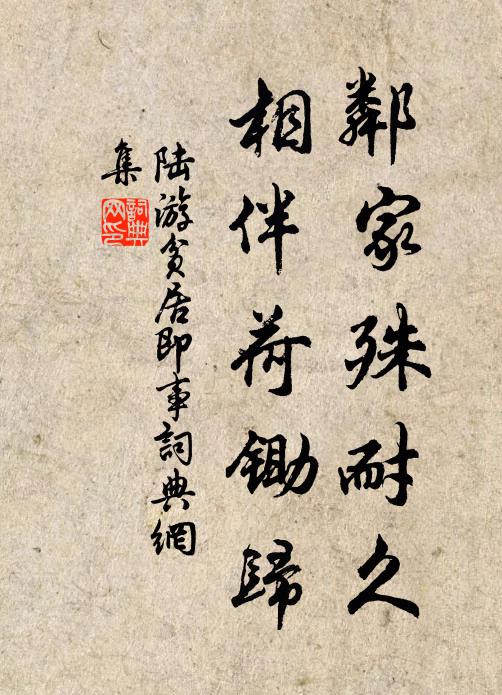 鄰家殊耐久
相伴荷鋤歸
陆游贫居即事詞典網
集
詞典網印